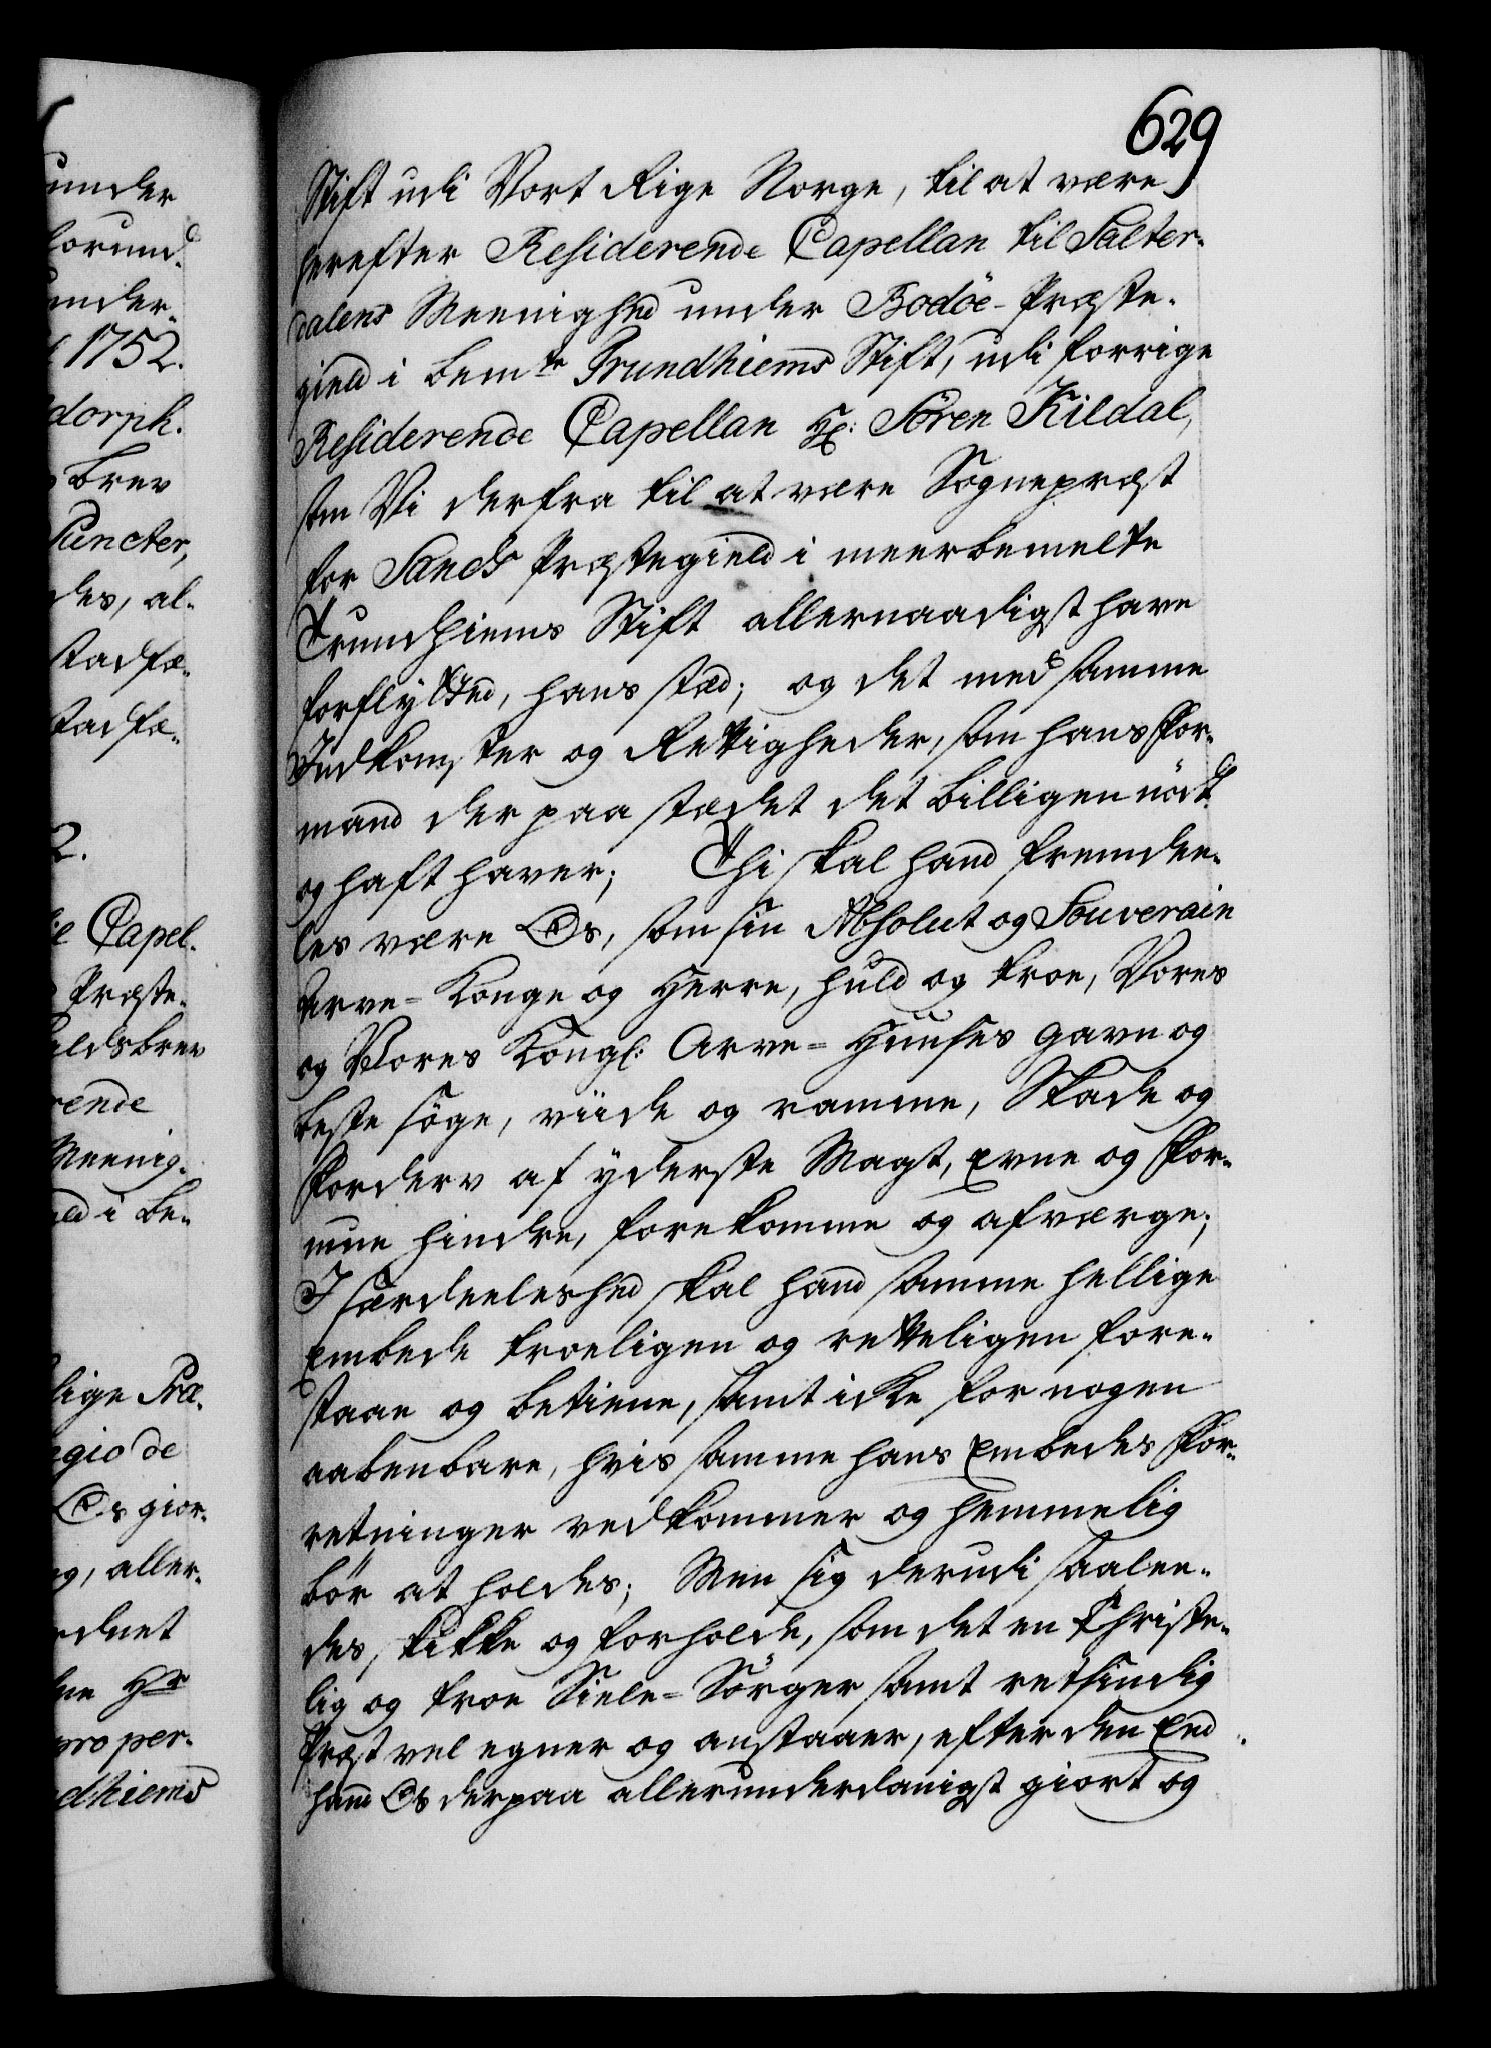 629
Stift udi Vort Rige Norge, til at være
herefter Residerende Capellan til Salter-
dalens Meenighed under Bodöe-Præste-
gield i bemte Trundhiems Stift, udi forrige
Residerende Capellan Hr: Sören Kildal,
som Vi derfra til at være Sognepræst
for Sands Præstegield i meerbemelte
Trundhiems Stift allernaadigst have
forflytted, hans sted; og det med samme
Indkomster og Rettigheder, som hans For-
mand der paa stædet det billigen nödt
og haft haver; Thi skal hand fremdee-
les være Os, som sin Absolut og Souverain
Arve-Konge og Herre, huld og troe, Vores
og Vores Kongl: Arve-Huuses gavn og
beste söge, viide og ramme, Skade og
Forderv af yderste Magt, Evne og For-
mue hindre, forekomme og afværge;
I særdeeleshed skal hand samme hellige
Embede troeligen og retteligen fore-
staae og betiene, samt icke for nogen
aabenbare, hvis samme hans Embedes For-
retninger vedkommer og hemmelig
bör at holdes; Men sig derudi saalee-
des skikke og forholde, som det en Christe-
lig og troe Siele-Sörger samt retsindig
Præst vel egner og anstaaer, efter den Eed
hand Os derpaa allerunderdanigst giort og
under
forund-
under-
1752.
dorph.
brev
Puncter,
des, al-
stadfæ-
stadfæ-
2.
Capel-
Præste-
Kaldsbrev
rende
Meenig-
ield i be-
lige Præ-
egio de
Os gior-
og, aller-
rdnet
Hr
pro per-
dhiems